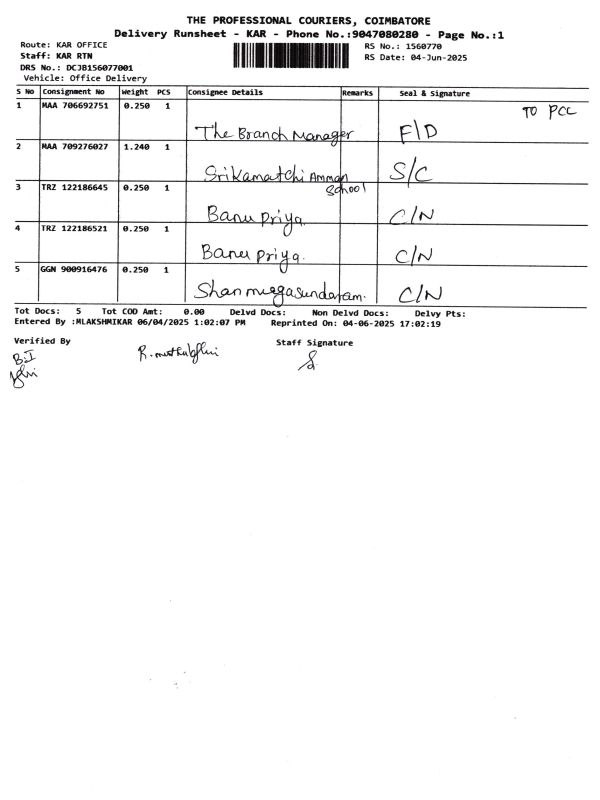 THE PROFESSIONAL COURIERS, COIMBATORE
Delivery Runsheet - KAR - Phone No.:9047080280 - Page No.:1
Route: KAR OFFICE RS No.: 1560770
Staff: KAR RTN RS Date: 04-Jun-2025
DRS No.: DCJB156077001
Vehicle: Office Delivery
S No Consignment No Weight PCS Consignee Details Remarks Seal & Signature
1 MAA 706692751 0.250 1 TO PCC
The Branch Manager F/D
2 MAA 709276027 1.240 1
Srikamatchi Amman S/C
School
3 TRZ 122186645 0.250 1
Banu Priya C/N
4 TRZ 122186521 0.250 1
Banu Priya. C/N
5 GGN 900916476 0.250 1
Shanmugasundaram. C/N
Tot Docs: 5 Tot COD Amt: 0.00 Delvd Docs: Non Delvd Docs: Delvy Pts:
Entered By :MLAKSHMIKAR 06/04/2025 1:02:07 PM Reprinted On: 04-06-2025 17:02:19
Verified By Staff Signature